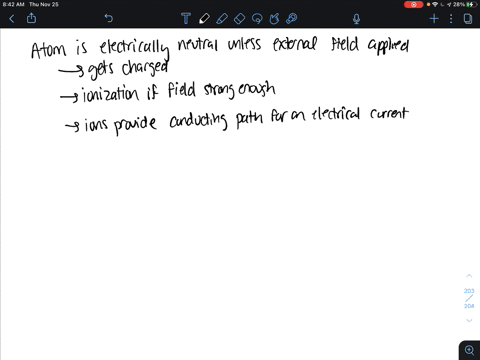 8:42 AM Thu Nov 25
28%
Atom is electrically neutral unless external field applied
→ gets charged
→ ionization if field strong enough
→ ions provide conducting path for an electrical current
203
304